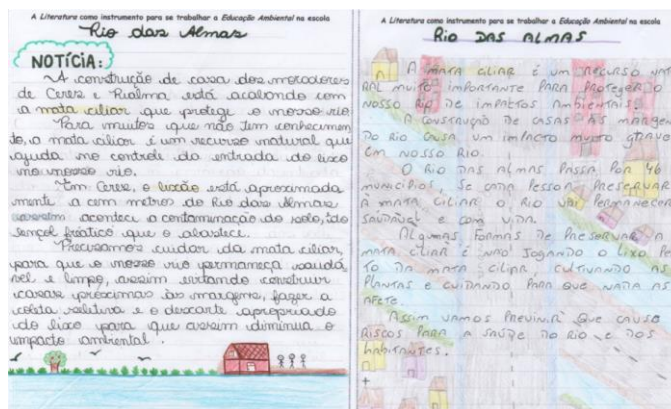 A Literatura como instrumento para se trabalhar a Educação Ambiental na escola
Rio das Almas
NOTÍCIA:
A construção de casa dos moradores
de Ceres e Rialma está acabando com
a mata ciliar que protege o nosso rio.
Para muitos que não tem conhecimen
to, a mata ciliar é um recurso natural que
ajuda no controle da entrada do lixo
no nosso rio.
Em Ceres, o lixão está aproximada
mente a cem metros do Rio das Almas
assim acontece a contaminação do solo, do
lençol freático que o abastece.
Precisamos cuidar da mata ciliar,
para que o nosso rio permaneça saudá
vel e limpo, assim evitando construir
casas próximas às margens, fazer a
coleta seletiva e o descarte apropriado
do lixo para que assim diminua o
impacto ambiental.
A Literatura como instrumento para se trabalhar a Educação Ambiental na escola
RIO DAS ALMAS
A MATA CILIAR É UM RECURSO NAT
RAL MUITO IMPORTANTE PARA PROTEGER O
NOSSO RIO DE IMPACTOS AMBIENTAIS.
A CONSTRUÇÃO DE CASAS ÀS MARGEN
DO RIO CAUSA UM IMPACTO MUITO GRAVE
EM NOSSO RIO.
O RIO DAS ALMAS PASSA POR 40
MUNICÍPIOS, SE CADA PESSOA PRESERVAR
A MATA CILIAR O RIO VAI PERMANECER
SAUDÁVEL E COM VIDA.
ALGUMAS FORMAS DE PRESERVAR A
MATA CILIAR É NÃO JOGANDO O LIXO PE
TO DA MATA CILIAR, CULTIVANDO AS
PLANTAS E CUIDANDO PARA QUE NADA AS
AFETE.
ASSIM VAMOS PREVINIR QUE CAUSE
RISCOS PARA A SAÚDE DO RIO E DOS
HABITANTES.